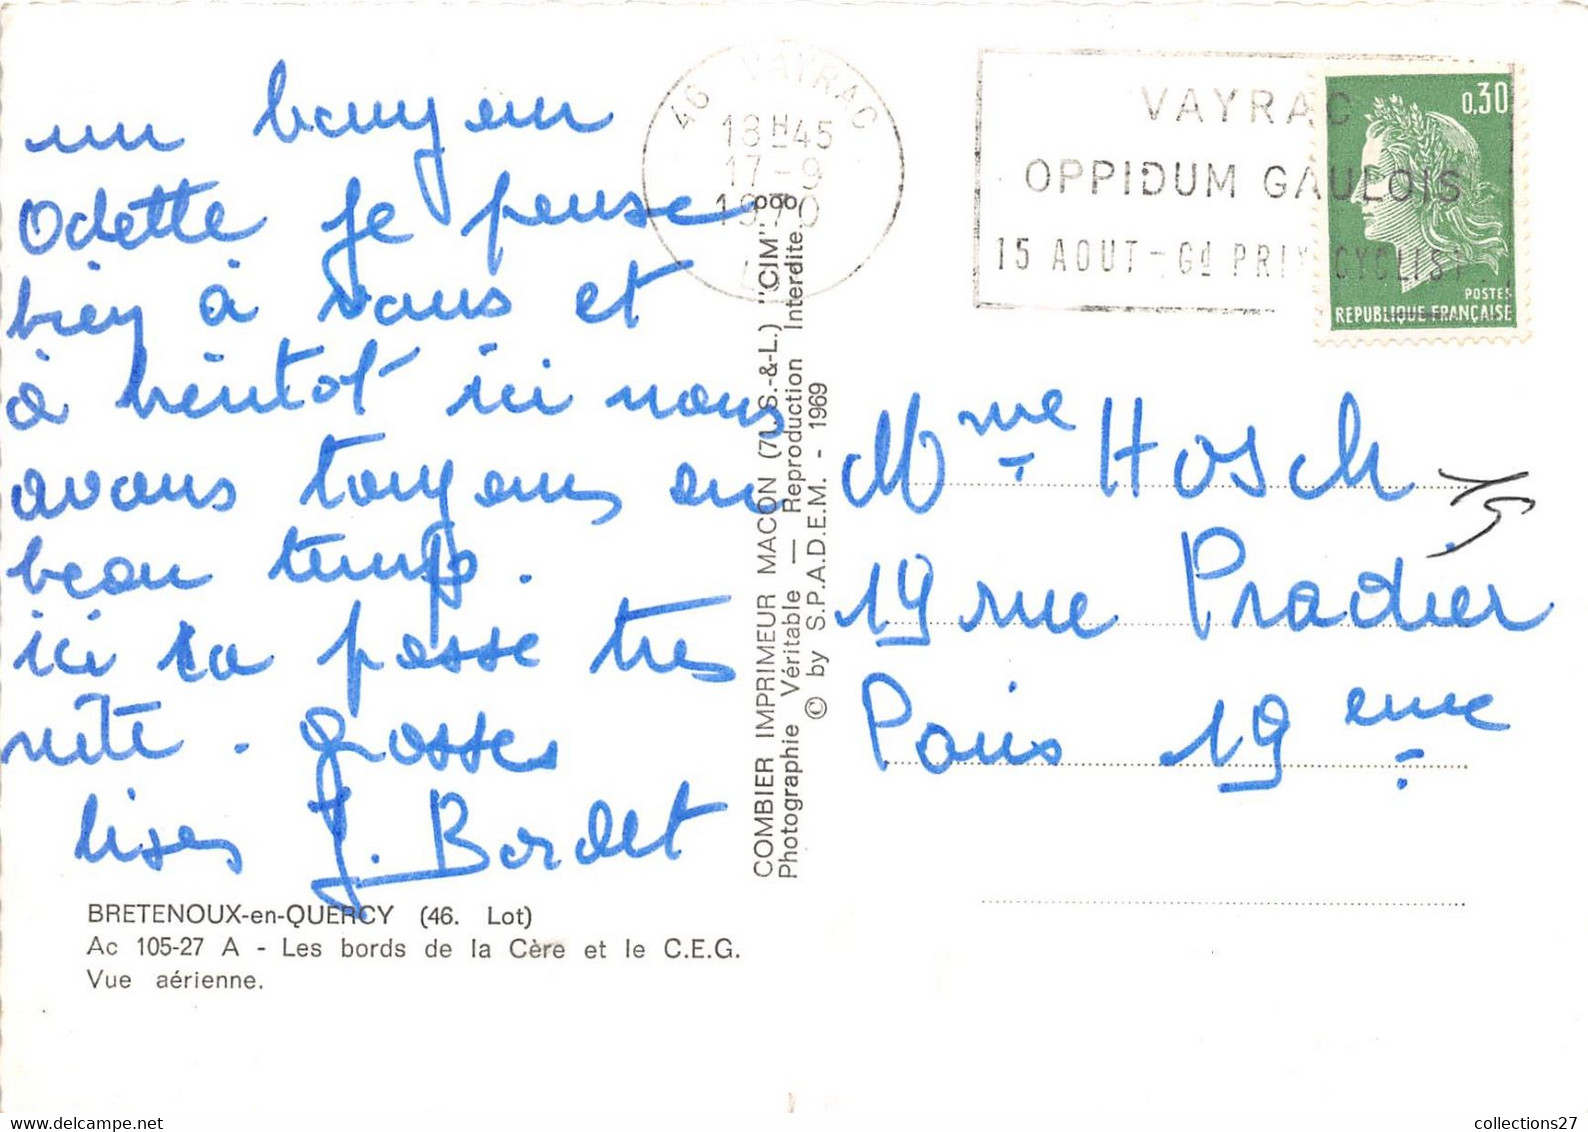 un bonjour
Odette je pense
bien à vous et
à bientôt ici nous
avons toujours eu
beau temps.
ici ca passe tres
vite. grosses
bises J. Bordet
BRETENOUX-en-QUERCY (46. Lot)
Ac 105-27 A - Les bords de la Cère et le C.E.G.
Vue aérienne.
COMBIER IMPRIMEUR MACON (71. S.-&-L.) "CIM"
Photographie Véritable — Reproduction Interdite
© by S.P.A.D.E.M. - 1969
46 VAYRAC
18H45
17-9
1970
VAYRAC
OPPIDUM GAULOIS
15 AOUT - Gd PRIX CYCLISTE
0,30
POSTES
REPUBLIQUE FRANÇAISE
Mme Hosch
19 rue Pradier
Paris 19eme
collections27